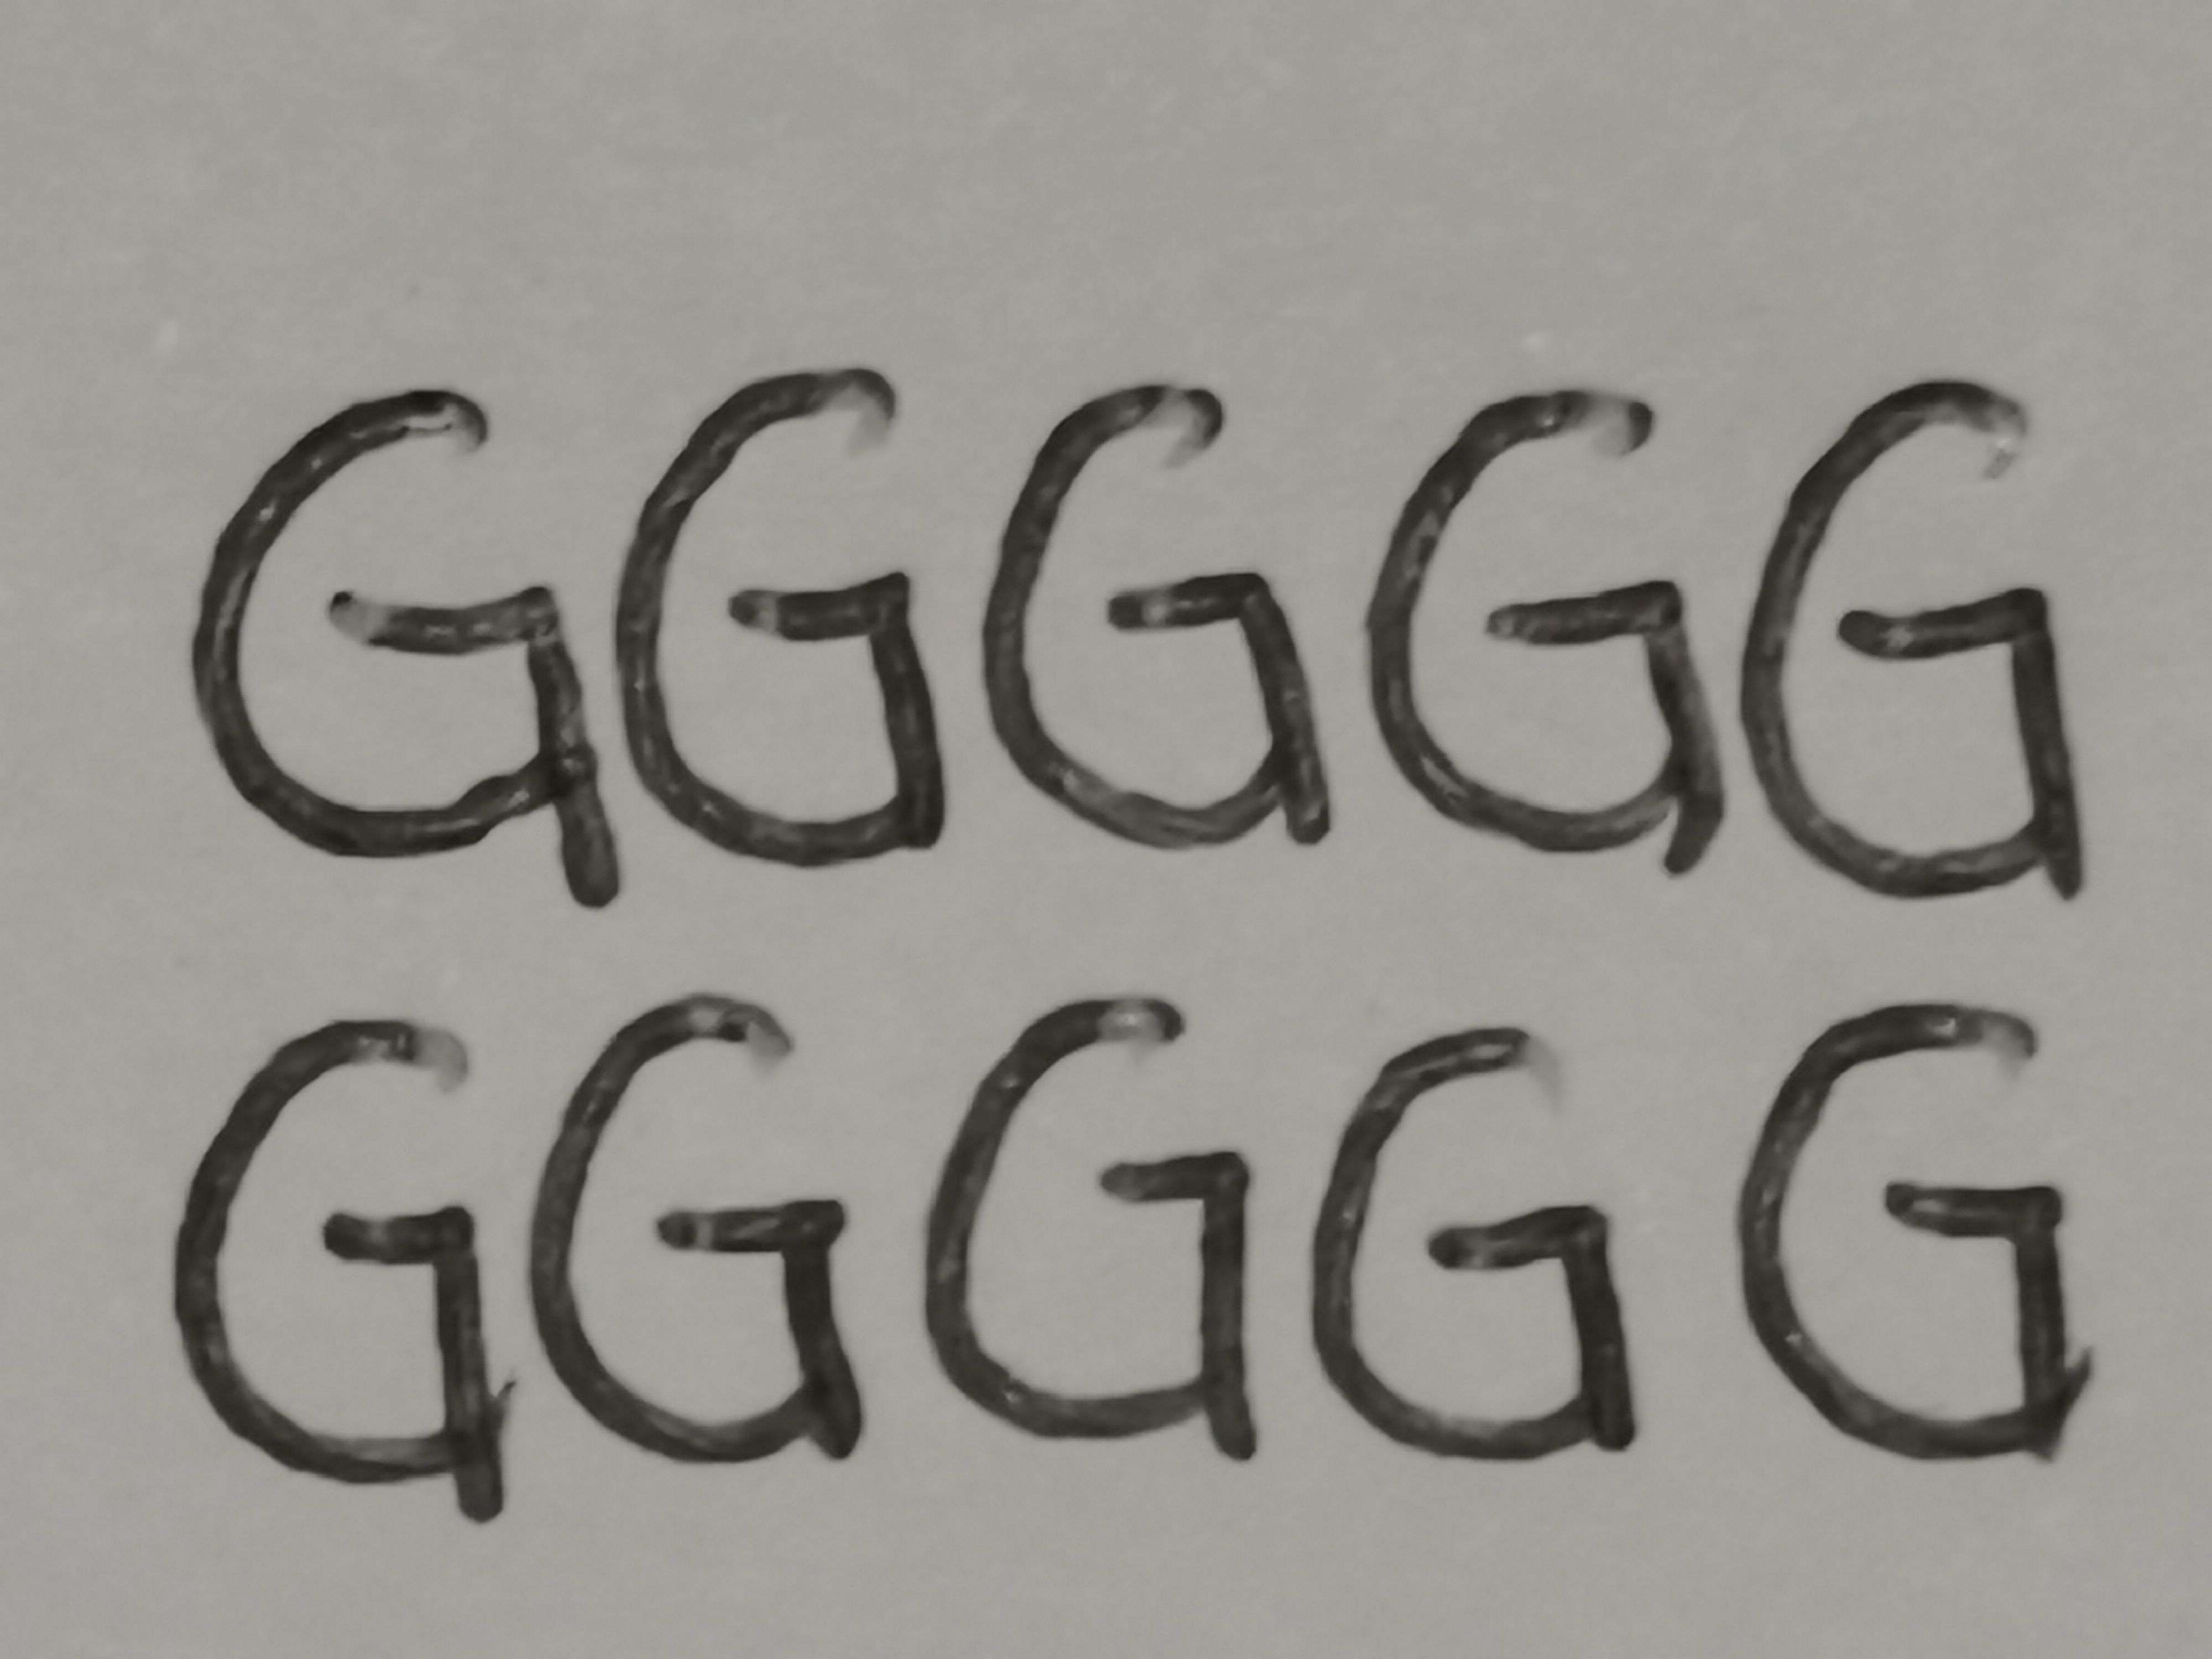 GGGGG
GGGGG